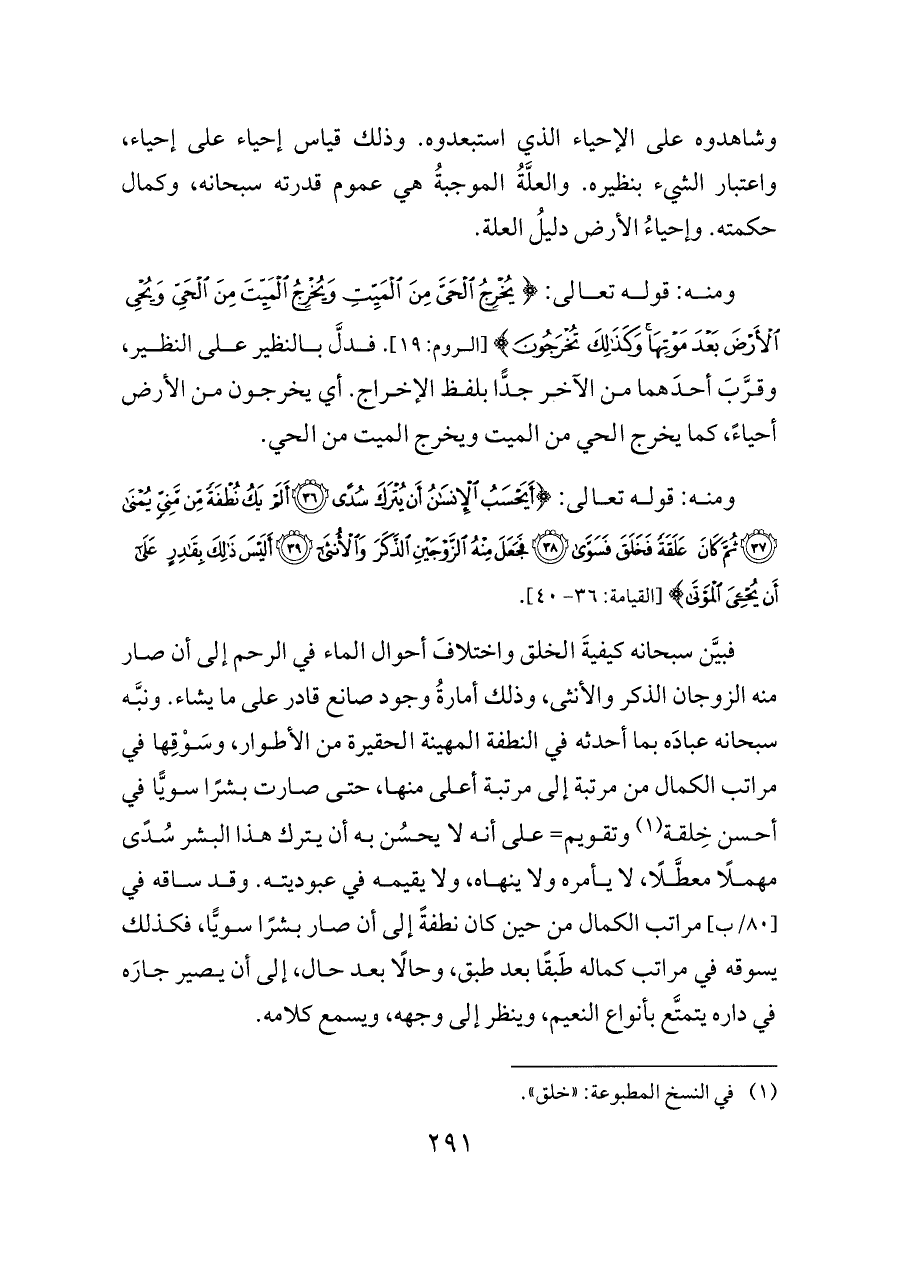 وشاهدوه على الإحياء الذي استبعدوه. وذلك قياس إحياء على إحياء،
واعتبار الشيء بنظيره. والعلَّةُ الموجبةُ هي عموم قدرته سبحانه، وكمال
حكمته. وإحياءُ الأرض دليلُ العلة.
ومنـه: قولـه تعـالى: ﴿ يُخْرِجُ ٱلْحَىَّ مِنَ ٱلْمَيِّتِ وَيُخْرِجُ ٱلْمَيِّتَ مِنَ ٱلْحَىِّ وَيُحْىِ
ٱلْأَرْضَ بَعْدَ مَوْتِهَا ۚ وَكَذَٰلِكَ تُخْرَجُونَ ﴾ [الـروم: ١٩]. فـدلَّ بـالنظير علـى النظـير،
وقـرَّبَ أحـدَهما مـن الآخـر جـدًّا بلفـظ الإخـراج. أي يخرجـون مـن الأرض
أحياءً، كما يخرج الحي من الميت ويخرج الميت من الحي.
ومنـه: قولـه تعـالى: ﴿أَيَحْسَبُ ٱلْإِنسَٰنُ أَن يُتْرَكَ سُدًى ﴿٣٦﴾ أَلَمْ يَكُ نُطْفَةً مِّن مَّنِىٍّ يُمْنَىٰ
﴿٣٧﴾ ثُمَّ كَانَ عَلَقَةً فَخَلَقَ فَسَوَّىٰ ﴿٣٨﴾ فَجَعَلَ مِنْهُ ٱلزَّوْجَيْنِ ٱلذَّكَرَ وَٱلْأُنثَىٰٓ ﴿٣٩﴾ أَلَيْسَ ذَٰلِكَ بِقَٰدِرٍ عَلَىٰٓ
أَن يُحْـِۧىَ ٱلْمَوْتَىٰ﴾ [القيامة: ٣٦- ٤٠].
فبيَّن سبحانه كيفيةَ الخلق واختلافَ أحوال الماء في الرحم إلى أن صار
منه الزوجان الذكر والأنثى، وذلك أمارةُ وجود صانع قادر على ما يشاء. ونبَّه
سبحانه عبادَه بما أحدثه في النطفة المهينة الحقيرة من الأطـوار، وسَـوْقِها في
مراتب الكمال من مرتبة إلى مرتبـة أعلـى منهـا، حتـى صـارت بـشرًا سـويًّا في
أحـسن خِلقـة(١) وتقـويم= علـى أنـه لا يحـسُن بـه أن يـترك هـذا البـشر سُـدًى
مهمـلًا معطَّـلًا، لا يـأمره ولا ينهـاه، ولا يقيمـه في عبوديتـه. وقـد سـاقه في
[٨٠/ ب] مراتب الكمال من حين كان نطفةً إلى أن صار بـشرًا سـويًّا، فكـذلك
يسوقه في مراتب كماله طَبقًا بعد طبق، وحالًا بعـد حـال، إلى أن يـصير جـارَه
في داره يتمتَّع بأنواع النعيم، وينظر إلى وجهه، ويسمع كلامه.
(١) في النسخ المطبوعة: «خلق».
٢٩١